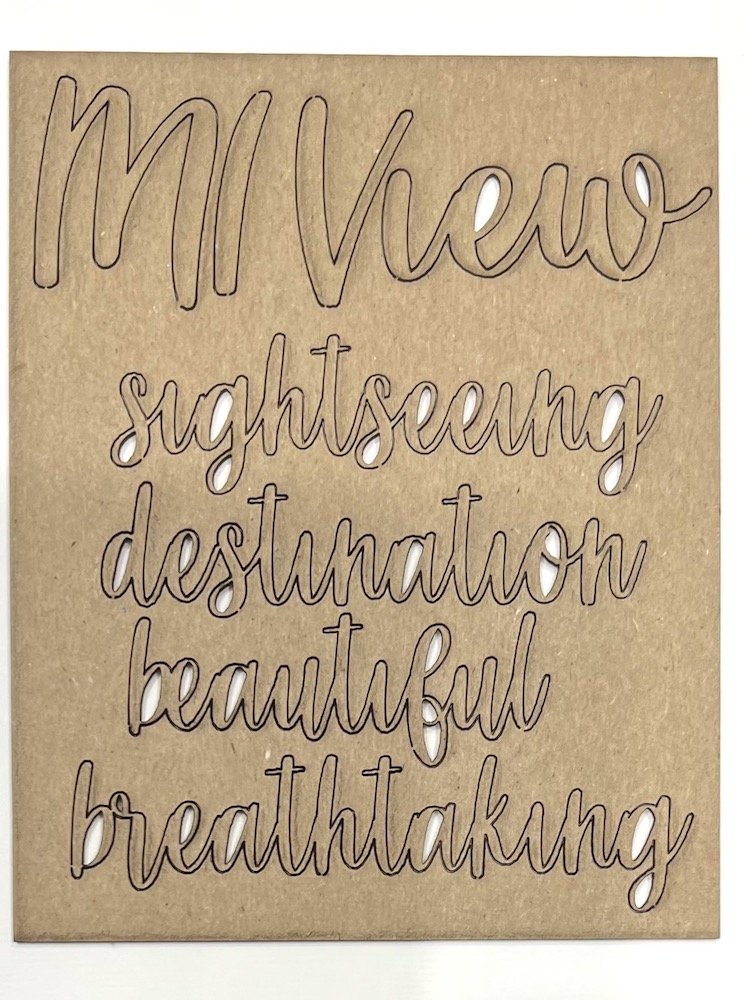 MI View
sightseeing
destination
beautiful
breathtaking